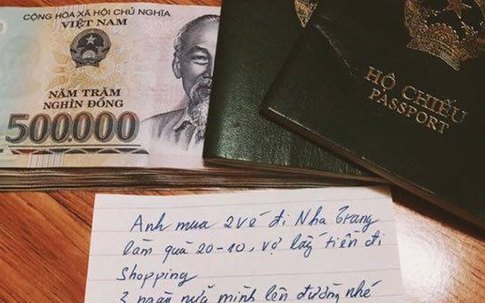 CỘNG HÒA XÃ HỘI CHỦ NGHĨA
VIỆT NAM
NĂM TRĂM
NGHÌN ĐỒNG
500000
HỘ CHIẾU
PASSPORT
Anh mua 2 vé đi Nha Trang
làm quà 20-10, vợ lấy tiền đi
Shopping
3 ngày nữa mình lên đường nhé